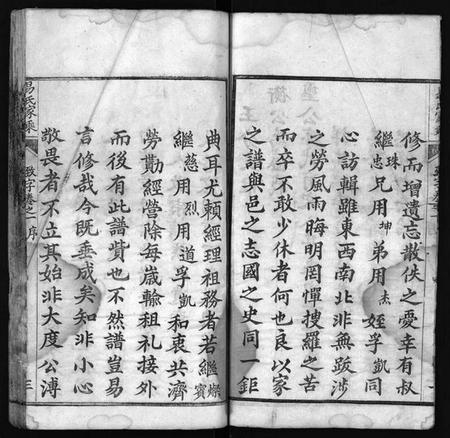 修而增遺忘散佚之憂幸有叔
繼珠忠兄用坤弟用志姪孚凱同
心訪輯雖東西南北非無跋涉
之勞風雨晦明罔憚搜羅之苦
而卒不敢少休者何也良以家
之譜與邑之志國之史同一鉅
易氏家乘
致字卷之一序
三
典耳尤賴經理祖務者若繼燦賓
繼慈用烈用道孚凱和衷共濟
勞勩經營除每歲輸租禮接外
而後有此譜貲也不然譜豈易
言修哉今既垂成矣知非小心
敬畏者不立其始非大度公溥